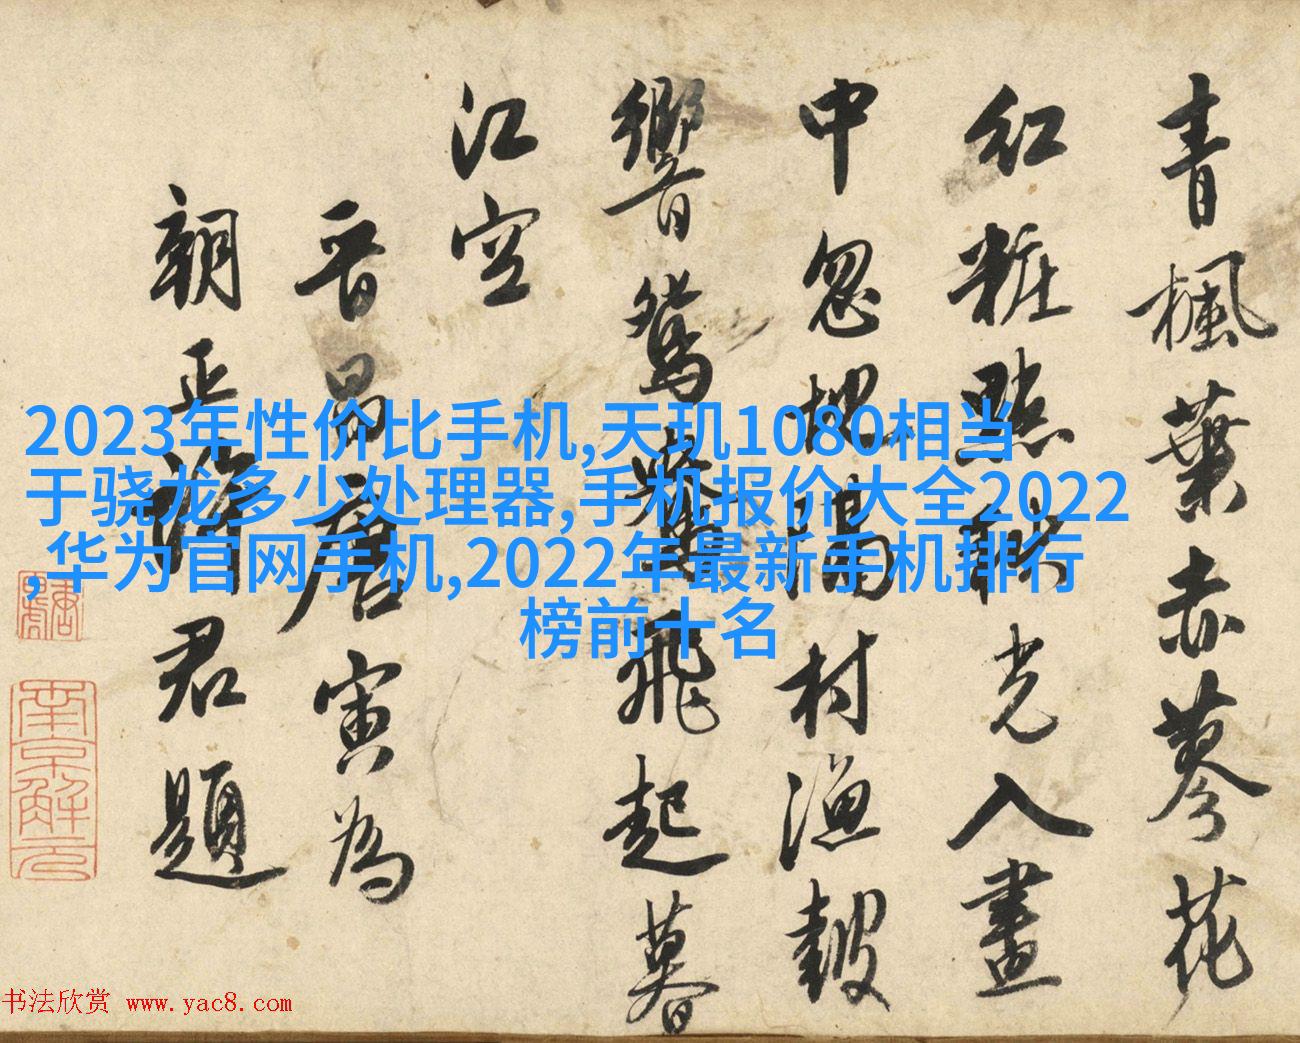 青楓葉赤蓼花
紅粧點秋光入畫
中忽地隔村漁鼓
響鴛鴦飛起暮
江空
晉昌唐寅為
朝正君題
南京解元
2023年性价比手机,天玑1080相当
于骁龙多少处理器,手机报价大全2022
,华为官网手机,2022年最新手机排行
榜前十名
书法欣赏 www.yac8.com